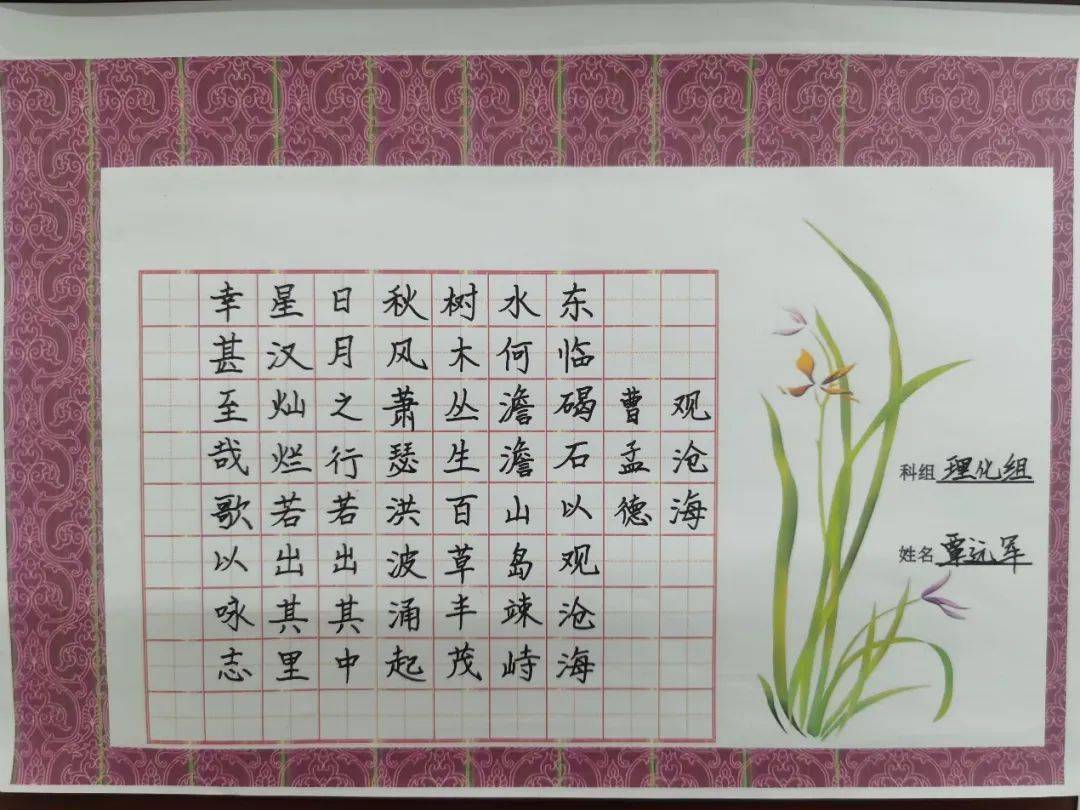 观沧海
曹孟德
东临碣石以观沧海
水何澹澹山岛竦峙
树木丛生百草丰茂
秋风萧瑟洪波涌起
日月之行若出其中
星汉灿烂若出其里
幸甚至哉歌以咏志
科组 理化组
姓名 覃远军